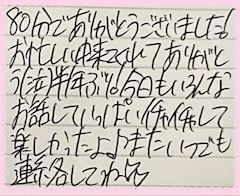 80分でありがとうございました!
お忙しい中来てくれてありがと
う(泣)半年ぶり!今日もいろんな
お話していっぱいイチャイチャして
楽しかったよ♪またいつでも
連絡してねー